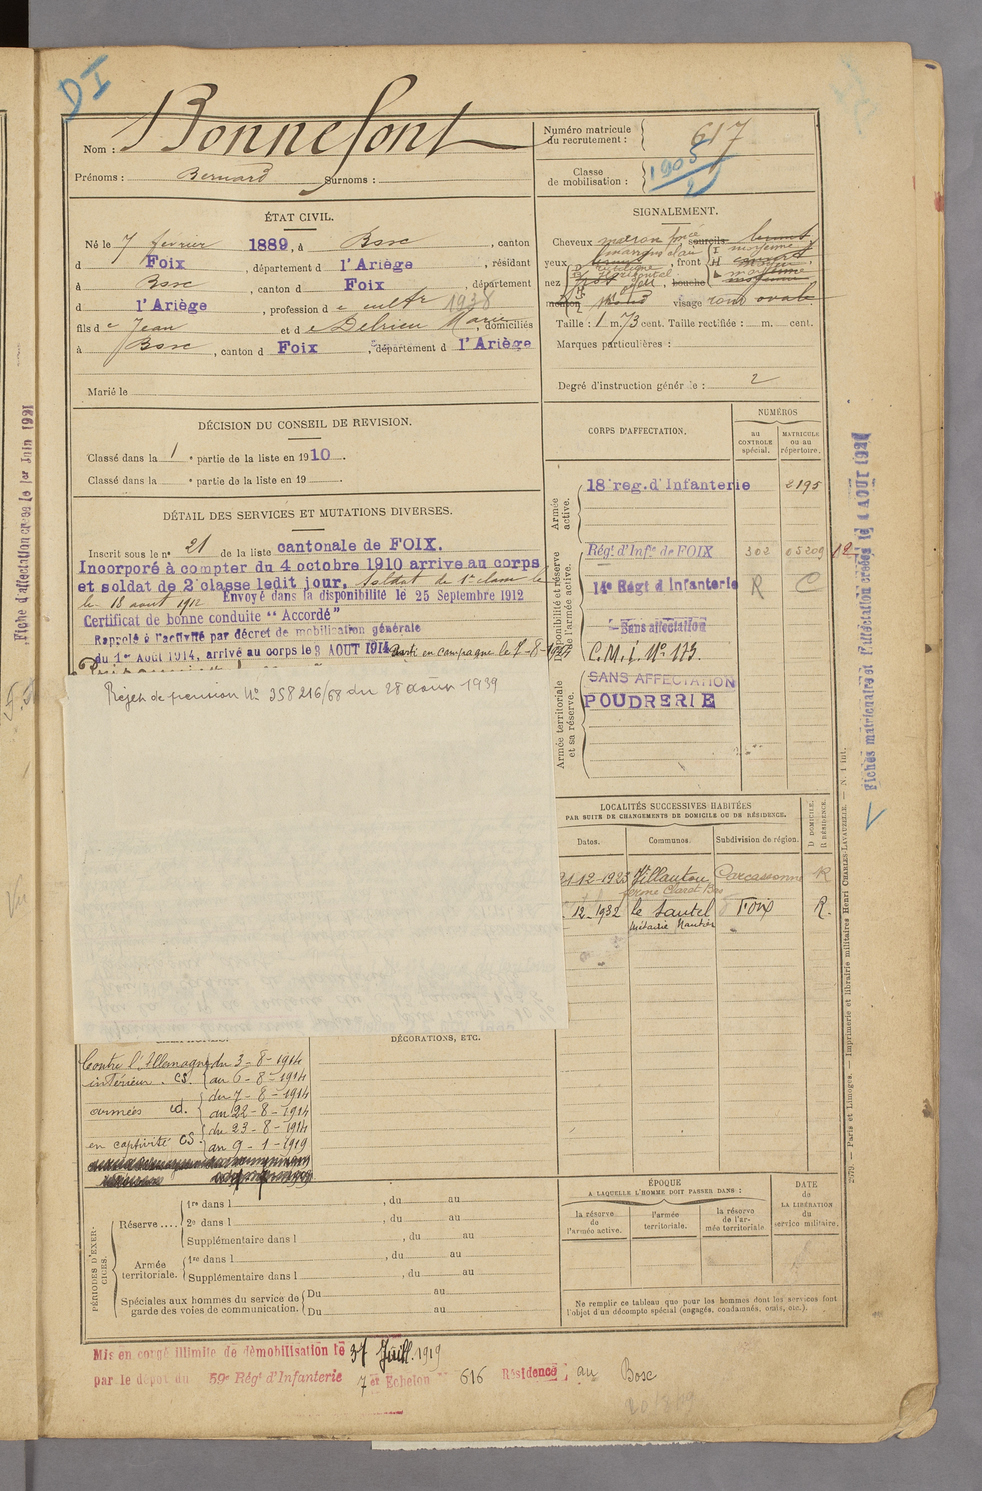 DI
Nom : Bonnefont
Prénoms : Bernard Surnoms :
Numéro matricule du recrutement : 617
Classe de mobilisation : 1905 / 2
ÉTAT CIVIL.
Né le 7 février 1889, à Bosc, canton
d Foix, département d l'Ariège, résidant
à Bosc, canton d Foix, département
d l'Ariège, profession d e cultr 1938
fils d e Jean et d e Delrieu Marie, domiciliés
à Bosc, canton d Foix, département d l'Ariège
Marié le
SIGNALEMENT.
Cheveux marron foncé sourcils
yeux marron clair, front
nez, bouche
menton rond visage rond ovale
Taille : 1 m. 73 cent. Taille rectifiée : m. cent.
Marques particulières :
Degré d'instruction générale : 2
DÉCISION DU CONSEIL DE REVISION.
Classé dans la 1e partie de la liste en 1910.
Classé dans la e partie de la liste en 19.
DÉTAIL DES SERVICES ET MUTATIONS DIVERSES.
Inscrit sous le n° 21 de la liste cantonale de FOIX.
Incorporé à compter du 4 octobre 1910 arrivé au corps
et soldat de 2e classe ledit jour. Soldat de 1re classe le
le 18 aout 1912 Envoyé dans la disponibilité le 25 Septembre 1912
Certificat de bonne conduite "Accordé"
Rappelé à l'activité par décret de mobilisation générale
du 1er Août 1914, arrivé au corps le 3 AOUT 1914 Parti en campagne le 7-8-1914
Rejet de pension N° 358216/68 du 28 août 1939
CORPS D'AFFECTATION.
NUMÉROS
au CONTROLE spécial.
MATRICULE ou au répertoire.
Armée active.
18e reg. d'Infanterie 2195
Disponibilité et réserve de l'armée active.
Régt d'Infie de FOIX 302 05209 12
14e Régt d'Infanterie R C
Sans affectation
C.M.I. N° 173.
Armée territoriale et sa réserve.
SANS AFFECTATION
POUDRERIE
LOCALITÉS SUCCESSIVES HABITÉES
PAR SUITE DE CHANGEMENTS DE DOMICILE OU DE RÉSIDENCE.
Dates. Communes. Subdivision de région. D DOMICILE. R RÉSIDENCE.
21-12-1923 Villautou Carcassonne R
ferme Clarat Bas
12-1932 le Sautel Foix R.
Métairie Nautier
DÉCORATIONS, ETC.
Contre l'Allemagne du 3-8-1914
intérieur CS. au 6-8-1914
du 7-8-1914
armées id. au 22-8-1914
du 23-8-1914
en captivité CS. au 9-1-1919
PÉRIODES D'EXERCICES.
Réserve .... 1re dans l , du au
2e dans l , du au
Supplémentaire dans l , du au
Armée territoriale. 1re dans l , du au
Supplémentaire dans l , du au
Spéciales aux hommes du service de garde des voies de communication. Du au
Du au
ÉPOQUE
A LAQUELLE L'HOMME DOIT PASSER DANS :
la réserve de l'armée active.
l'armée territoriale.
la réserve de l'armée territoriale
DATE de LA LIBÉRATION du service militaire.
Ne remplir ce tableau que pour les hommes dont les services font
l'objet d'un décompte spécial (engagés, condamnés, omis, etc.).
Mis en congé illimité de démobilisation le 31 Juill. 1919
par le dépôt du 59e Régt d'Infanterie 7er Echelon N° 616 Résidence : au Bosc
Fiche d'affectation créée le 1er Juin 1921
Fiches matriculaire et d'affectation créées le 4 AOUT 192
2579. — Paris et Limoges. — Imprimerie et librairie militaires Henri CHARLES-LAVAUZELLE. — N. 1 int.